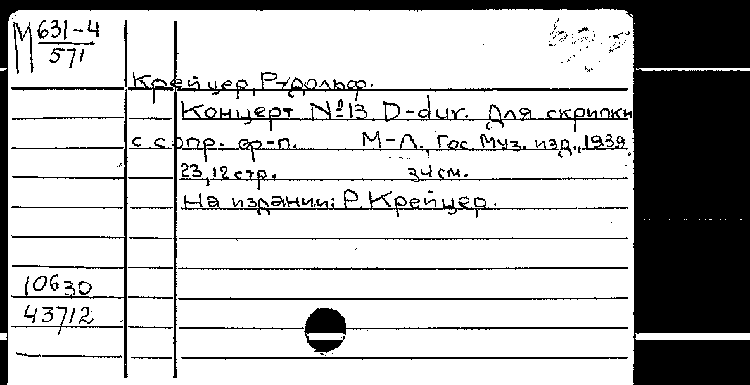 М 631-4
571
Крейцер, Рудольф.
Концерт №13 D-dur. Для скрипки
с сопр. ф-п. М-Л., Гос. Муз. изд., 1939.
23, 12 стр. 34 см.
На издании: Р. Крейцер.
10630
43712